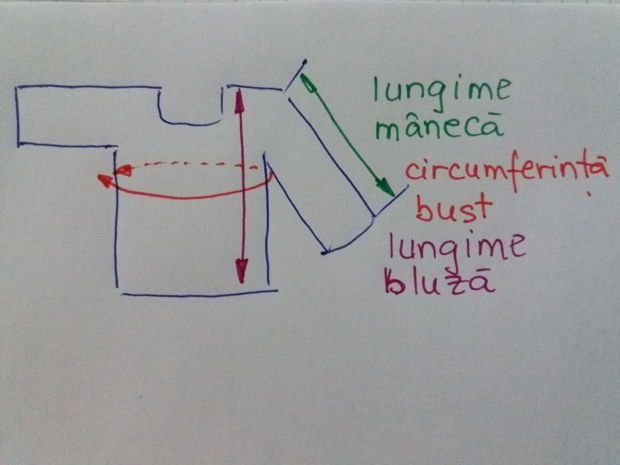 lungime
mânecă
circumferință
bust
lungime
bluză